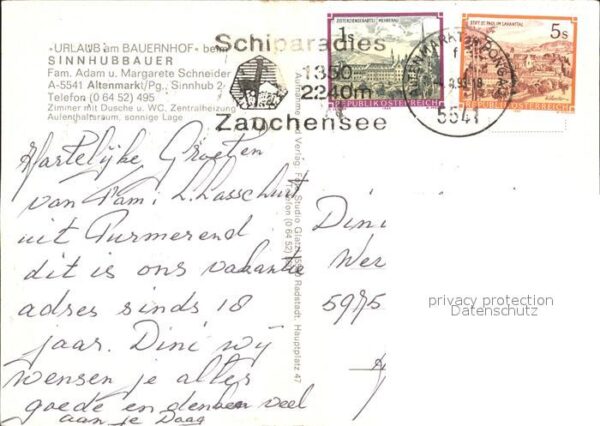 »URLAUB am BAUERNHOF« beim
SINNHUBBAUER
Fam. Adam u. Margarete Schneider
A-5541 Altenmarkt/Pg., Sinnhub 2
Telefon (0 64 52) 495
Zimmer mit Dusche u. WC, Zentralheizung
Aufenthaltsraum, sonnige Lage
Schiparadies
1350
2240m
Zauchensee
1s
ZISTERZIENSERABTEI MEHRERAU
REPUBLIK ÖSTERREICH
5s
STIFT ST. PAUL IM LAVANTTAL
REPUBLIK ÖSTERREICH
ALTENMARKT IM PONGAU
5541
Aufnahme und Verlag: Foto Studio Glatz, 5550 Radstadt, Hauptplatz 47
Telefon (0 64 52)
Hartelijke Groeten
van Fam: L. Lasschuit
uit Purmerend
dit is ons vakantie
adres sinds 18
jaar. Dini wij
wensen je alles
goede en denken veel
aan je Daag
Dini
Wer
5975
privacy protection
Datenschutz